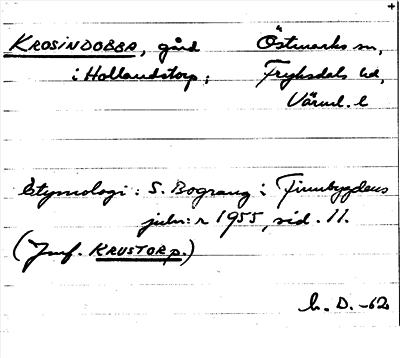 KROSINDOBBA, gård Östmarks sn,
i Hollandstorp; Fryksdals hd,
Värml. l
Etymologi: S. Bograng i Finnbygdens
julnr 1955, sid. 11.
(Jmf. KRUSTORP.)
h. D. -62